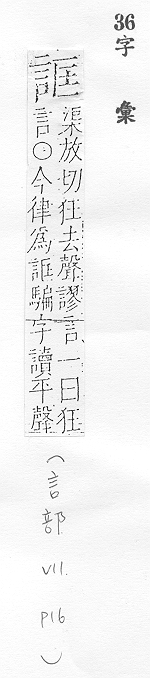 36
字彙
誆
渠放切狂去聲謬言一曰狂
言〇今律為誆騙字讀平聲
(言部 VII. P16)